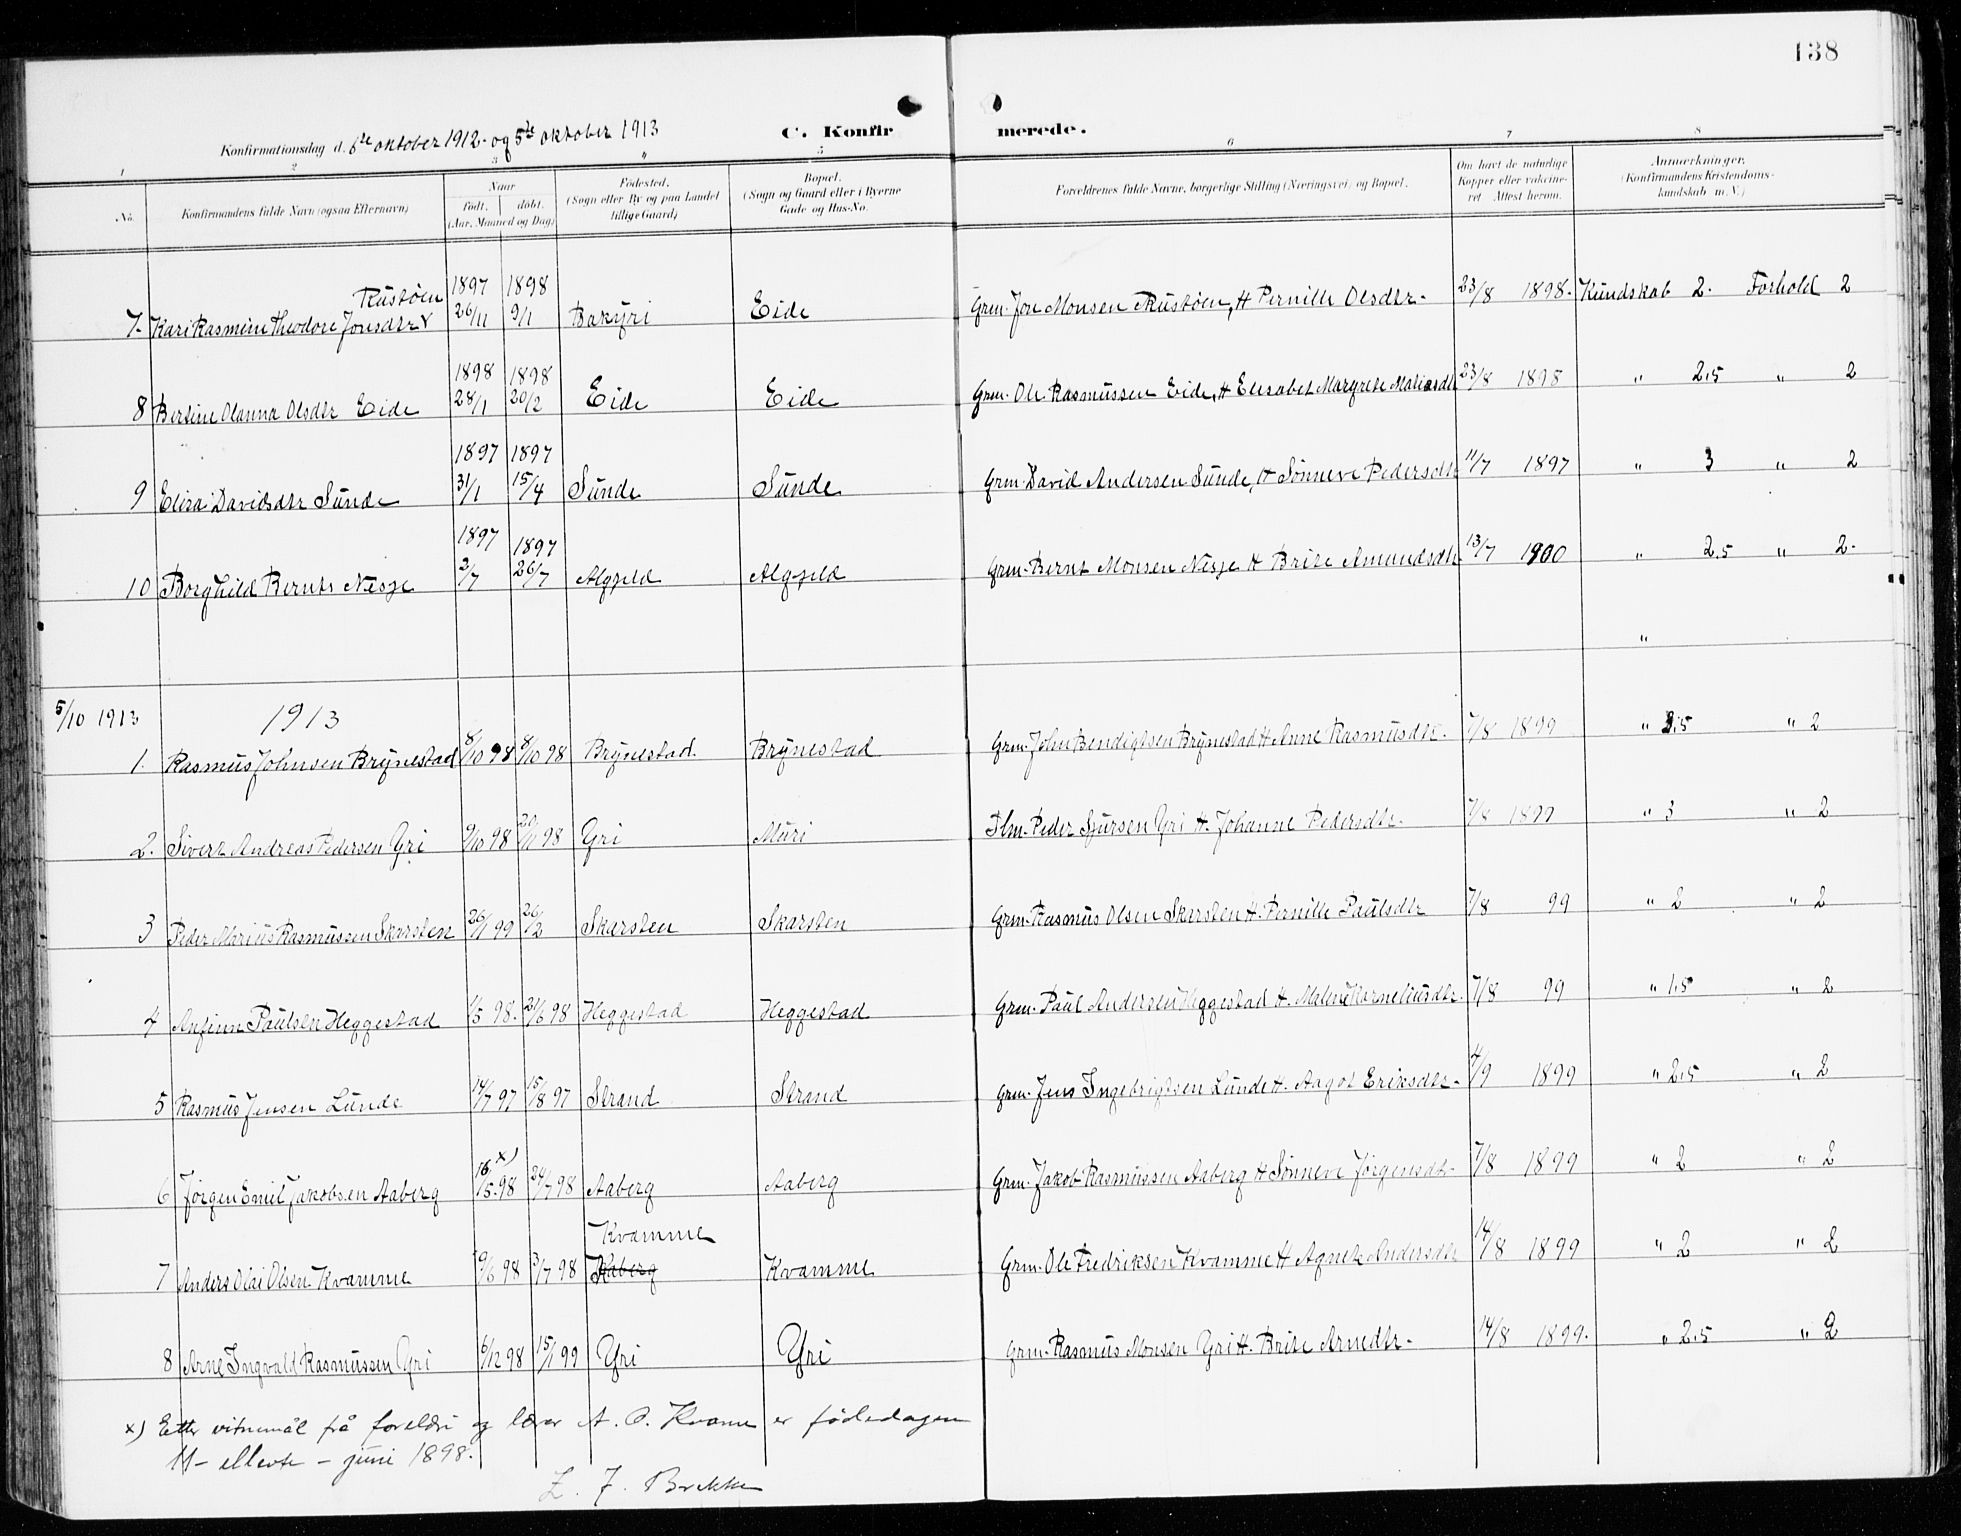 138
Konfirmationsdag d. 6te oktober 1912. og 5te oktober 1913
C. Konfirmerede.
1 2 3 " 5 6 7 8
No. Konfirmandens fulde Navn (ogsaa Efternavn) Naar født. døbt. (Aar, Maaned og Dag) Fødested. (Sogn eller By og paa Landet tillige Gaard) Bopæl. (Sogn og Gaard eller i Byerne Gade og Hus-No. Forældrenes fulde Navne, borgerlige Stilling (Næringsvei) og Bopæl. Om havt de naturlige Kopper eller vakcineret Attest herom. Anmærkninger. (Konfirmandens Kristendomskundskab m. V.)
7. Kari Rasmine Theodore Jonsdtr Rustøen 1897 26/11 1898 9/1 Bakyri Eide Grm. Jon Monsen Rustøen, H Pernille Olsdtr. 23/8 1898. Kundskab 2. Forhold 2
8 Bertine Olanna Olsdtr Eide 1898 28/1 1898 20/2 Eide Eide Grm. Ole Rasmussen Eide, H Elisabet Margrete Matiasdtr 23/8 1898 " 2.5 " 2
9 Elisa Davidsdtr Sunde 1897 31/1 1897 15/4 Sunde Sunde Grm. David Andersen Sunde, H Sønneve Pedersdtr 11/7 1897 " 3 " 2
10 Borghild Bernts Nesje 1897 2/7 1897 26/7 Algjeld Algjeld Grm. Bernt Monsen Nesje H Brite Amundsdtr 13/7 1900 " 2.5 " 2.
"
5/10 1913 1913
1. Rasmus Johnsen Brynestad 8/10 98 8/10 98 Brynestad. Brynestad Grm. John Bendigtsen Brynestad H Anne Rasmusdtr. 7/8 1899 " 2.5 " 2
2. Sivert Andreas Pedersen Yri 9/10 98 20/11 98 Yri Muri Peder Sjursen Yri H. Johanne Pedersdtr. 7/8 1899 " 3 " 2
3 Peder Marius Rasmussen Skarsten 26/1 99 26/2 Skarsten Skarsten Grm. Rasmus Olsen Skarsten H. Pernille Paulsdtr 7/8 99 " 2 " 2
4 Anfinn Paulsen Heggestad 98. 98 Heggestad Heggestad Grm. Paul Andersen Heggestad H. Malene Korneliusdtr. 7/8 99 " 1.5 " 2
5 Rasmus Jensen Lunde 14/7 97 15/8 97 Strand Strand Grm. Jens Ingebrigtsen Lunde H. Aagot Eriksdtr. 4/9 1899 " 2.5 " 2
6 Jørgen Emil Jakobsen Aaberg 16/5.98 x) 24/7 98 Aaberg Aaberg Grm. Jakob Rasmussen Aaberg H Sønneve Jørgensdtr. 7/8 1899 " 2 " 2
7 Anders Olai Olsen Kvamme 98 3/7 98 Kvamme Aaberg Kvamme Grm. Ole Fredriksen Kvamme H Agnete Andersdtr 14/8 1899 " 2 " 2
8 Arne Ingvald Rasmussen Yri 6/12 98 15/1 99 Yri Yri Grm. Rasmus Monsen Yri H. Brite Arnedtr. 14/8 1899. " 2.5 " 2
x) Etter vitnemål frå foreldri og lærar A. O. Kvame er fødedagen
11 - ellevte - juni 1898.
Z. J. Brekke